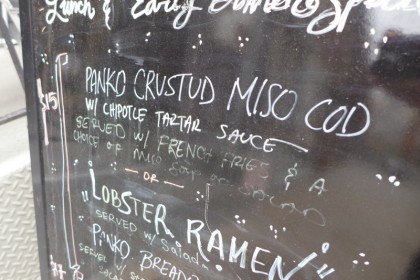 Lunch & Early Dinner Special
$15
PANKO CRUSTUD MISO COD
W/ CHIPOTLE TARTAR SAUCE
SERVED W/ FRENCH FRIES & A
CHOICE OF MISO OR SALAD
- OR -
LOBSTER RAMEN
SERVED W/ Salad
PANKO BREADED
SERVED W/